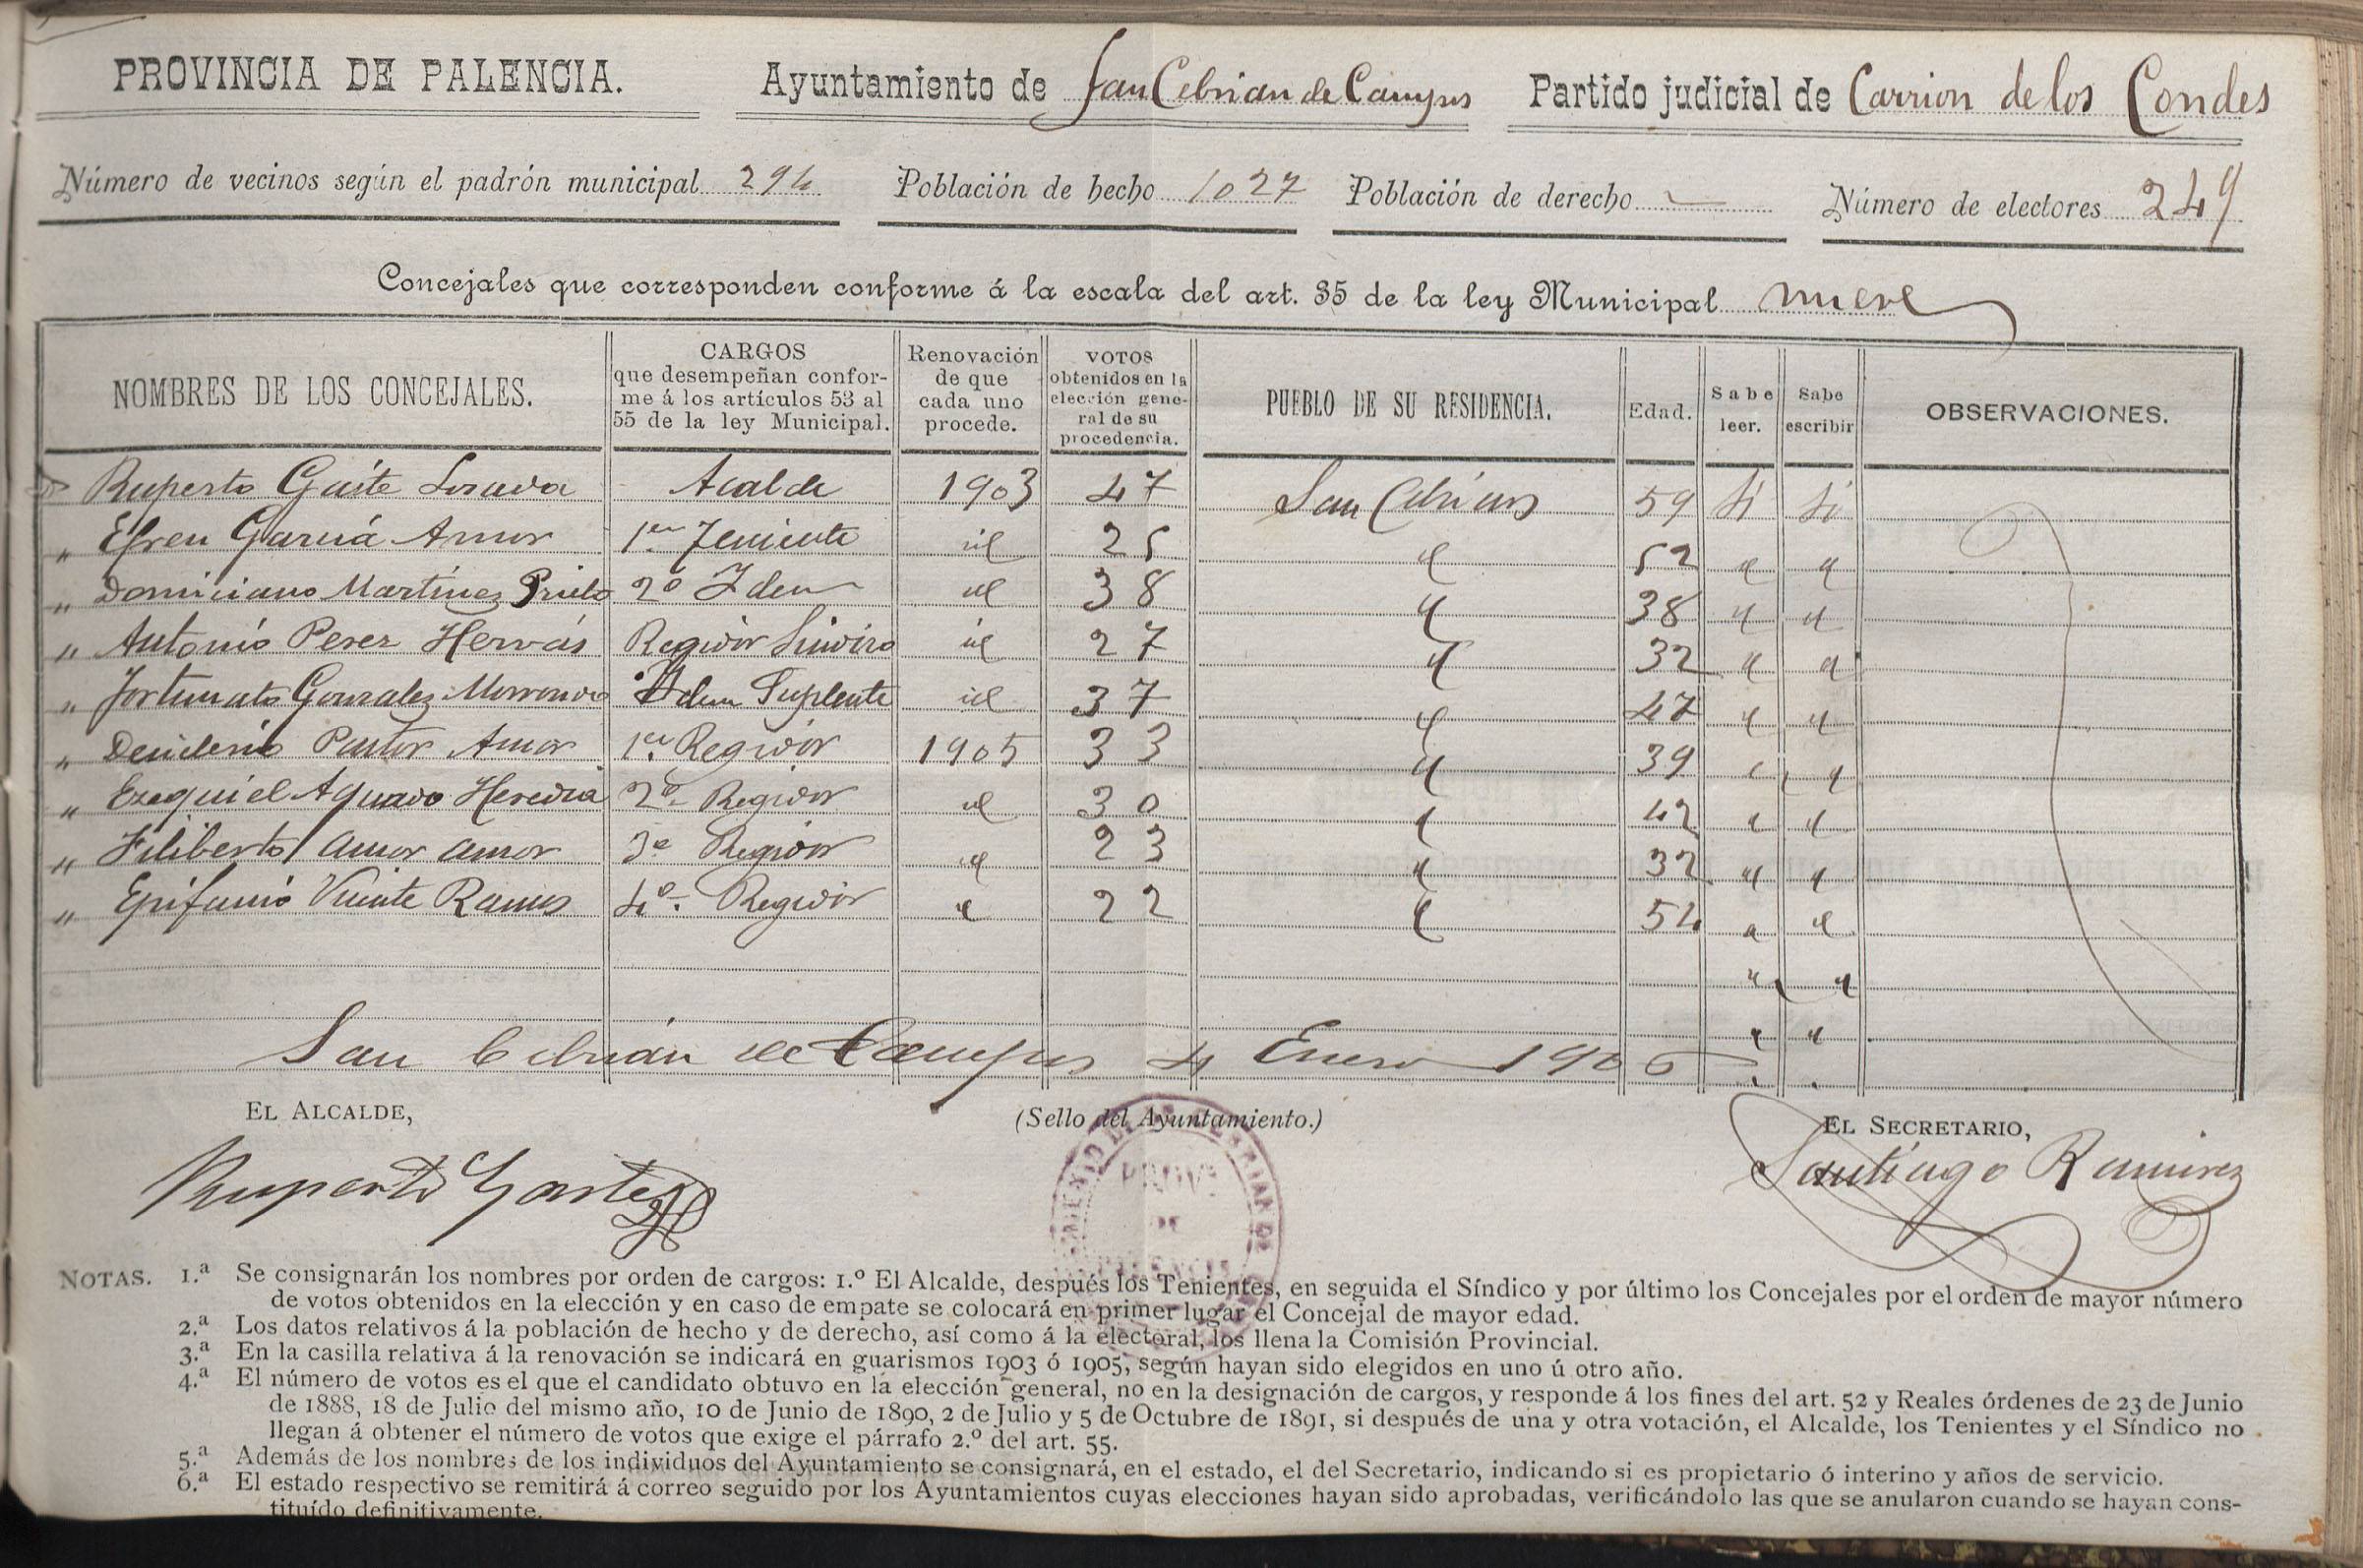 PROVINCIA DE PALENCIA. Ayuntamiento de San Cebrian de Campos Partido judicial de Carrion de los Condes
Número de vecinos según el padrón municipal 294 Población de hecho 1027 Población de derecho Número de electores 249
Concejales que corresponden conforme á la escala del art. 35 de la ley Municipal nueve
NOMBRES DE LOS CONCEJALES. CARGOS que desempeñan conforme á los artículos 53 al 55 de la ley Municipal. Renovación de que cada uno procede. VOTOS obtenidos en la elección general de su procedencia. PUEBLO DE SU RESIDENCIA. Edad. Sabe leer. Sabe escribir OBSERVACIONES.
Ruperto Gaite Acalde 1903 47 San Cebrian 59 Si Si
" Efren García Amor 1er Teniente id 25 " 52 " "
" Domiciano Martinez Prieto 2º Idem id 38 " 38 " "
" Antonio Perez Hervás Regidor Sindico id 27 " 32 " "
" Fortunato Gonzalez Idem Suplente id 37 " 47 " "
" Desiderio Pastor Amor 1er Regidor 1905 33 " 39 " "
" Ezequiel Aguado Heredia 2º Regidor id 30 " 42 " "
" Filiberto Amor Amor 3º Regidor id 23 " 32 " "
" Epifanio Vicente Ramos 4º Regidor " 22 " 54 " "
" "
" "
San Cebrián de Campos 4 Enero 1906
EL ALCALDE, (Sello del Ayuntamiento.) EL SECRETARIO,
Ruperto Gaite Santiago Ramirez
PROV.ª DE
NOTAS. 1.ª Se consignarán los nombres por orden de cargos: 1.º El Alcalde, después los Tenientes, en seguida el Síndico y por último los Concejales por el orden de mayor número
de votos obtenidos en la elección y en caso de empate se colocará en primer lugar el Concejal de mayor edad.
2.ª Los datos relativos á la población de hecho y de derecho, así como á la electoral, los llena la Comisión Provincial.
3.ª En la casilla relativa á la renovación se indicará en guarismos 1903 ó 1905, según hayan sido elegidos en uno ú otro año.
4.ª El número de votos es el que el candidato obtuvo en la elección general, no en la designación de cargos, y responde á los fines del art. 52 y Reales órdenes de 23 de Junio
de 1888, 18 de Julio del mismo año, 10 de Junio de 1890, 2 de Julio y 5 de Octubre de 1891, si después de una y otra votación, el Alcalde, los Tenientes y el Síndico no
llegan á obtener el número de votos que exige el párrafo 2.º del art. 55.
5.ª Además de los nombres de los individuos del Ayuntamiento se consignará, en el estado, el del Secretario, indicando si es propietario ó interino y años de servicio.
6.ª El estado respectivo se remitirá á correo seguido por los Ayuntamientos cuyas elecciones hayan sido aprobadas, verificándolo las que se anularon cuando se hayan cons-
tituído definitivamente.